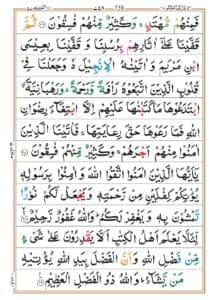 فَمِنْهُمْ مُّهْتَدٍ ۚ وَكَثِيْرٌ مِّنْهُمْ فٰسِقُوْنَ ۝ ثُمَّ
قَفَّيْنَا عَلٰۤى اٰثَارِهِمْ بِرُسُلِنَا وَقَفَّيْنَا بِعِيْسَى
ابْنِ مَرْيَمَ وَاٰتَيْنٰهُ الْاِنْجِيْلَ ۙ وَجَعَلْنَا فِيْ
قُلُوْبِ الَّذِيْنَ اتَّبَعُوْهُ رَاْفَةً وَّرَحْمَةً ؕ وَرَهْبَانِيَّةَ
ابْتَدَعُوْهَا مَا كَتَبْنٰهَا عَلَيْهِمْ اِلَّا ابْتِغَآءَ رِضْوَانِ
اللّٰهِ فَمَا رَعَوْهَا حَقَّ رِعَايَتِهَا ۚ فَاٰتَيْنَا الَّذِيْنَ
اٰمَنُوْا مِنْهُمْ اَجْرَهُمْ ۚ وَكَثِيْرٌ مِّنْهُمْ فٰسِقُوْنَ ۝ يٰۤاَيُّهَا
الَّذِيْنَ اٰمَنُوا اتَّقُوا اللّٰهَ وَاٰمِنُوْا بِرَسُوْلِهٖ
يُؤْتِكُمْ كِفْلَيْنِ مِنْ رَّحْمَتِهٖ وَيَجْعَلْ لَّكُمْ نُوْرًا
تَمْشُوْنَ بِهٖ وَيَغْفِرْ لَكُمْ ؕ وَاللّٰهُ غَفُوْرٌ رَّحِيْمٌ ۝
لِّئَلَّا يَعْلَمَ اَهْلُ الْكِتٰبِ اَلَّا يَقْدِرُوْنَ عَلٰى شَيْءٍ
مِّنْ فَضْلِ اللّٰهِ وَاَنَّ الْفَضْلَ بِيَدِ اللّٰهِ يُؤْتِيْهِ
مَنْ يَّشَآءُ ؕ وَاللّٰهُ ذُو الْفَضْلِ الْعَظِيْمِ ۝